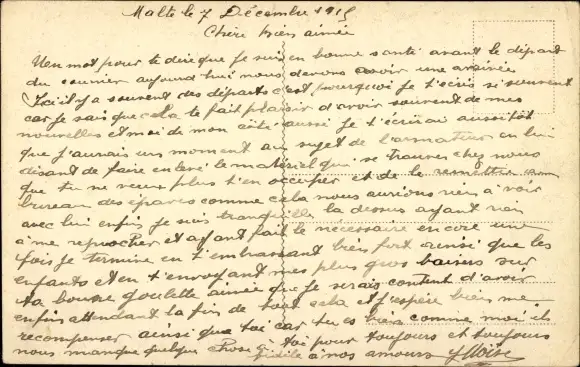 Malte le 7 Décembre 1915
Chère bien aimée
Un mot pour te dire que je suis en bonne santé avant le départ
du courrier aujourd'hui nous devons avoir une arrivée
Ici il y a souvent des départs c'est pourquoi je t'écris si souvent
car je sais que cela te fait plaisir d'avoir souvent de mes
nouvelles et moi de mon côté aussi je t'écrirai aussitôt
que j'aurais un moment au sujet de l'armateur en lui
disant de faire enlevé le matériel qui se trouve chez nous
que tu ne veux plus t'en occuper et de le remettre au
bureau des épaves comme cela nous aurions rien à voir
avec lui enfin je suis tranquille la dessus ayant rien
à me reprocher et ayant fait le nécessaire encore une
fois je termine en t'embrassant bien fort ainsi que les
enfants et en t'envoyant mes plus gros baisers sur
ta boune goulette aimée que je serais content d'avoir
enfin attendant la fin de tout cela et j'espère bien me
recompenser ainsi que toi car tu es bien comme moi il
nous manque quelque chose à toi pour toujours et toujours
fidèle à nos amours